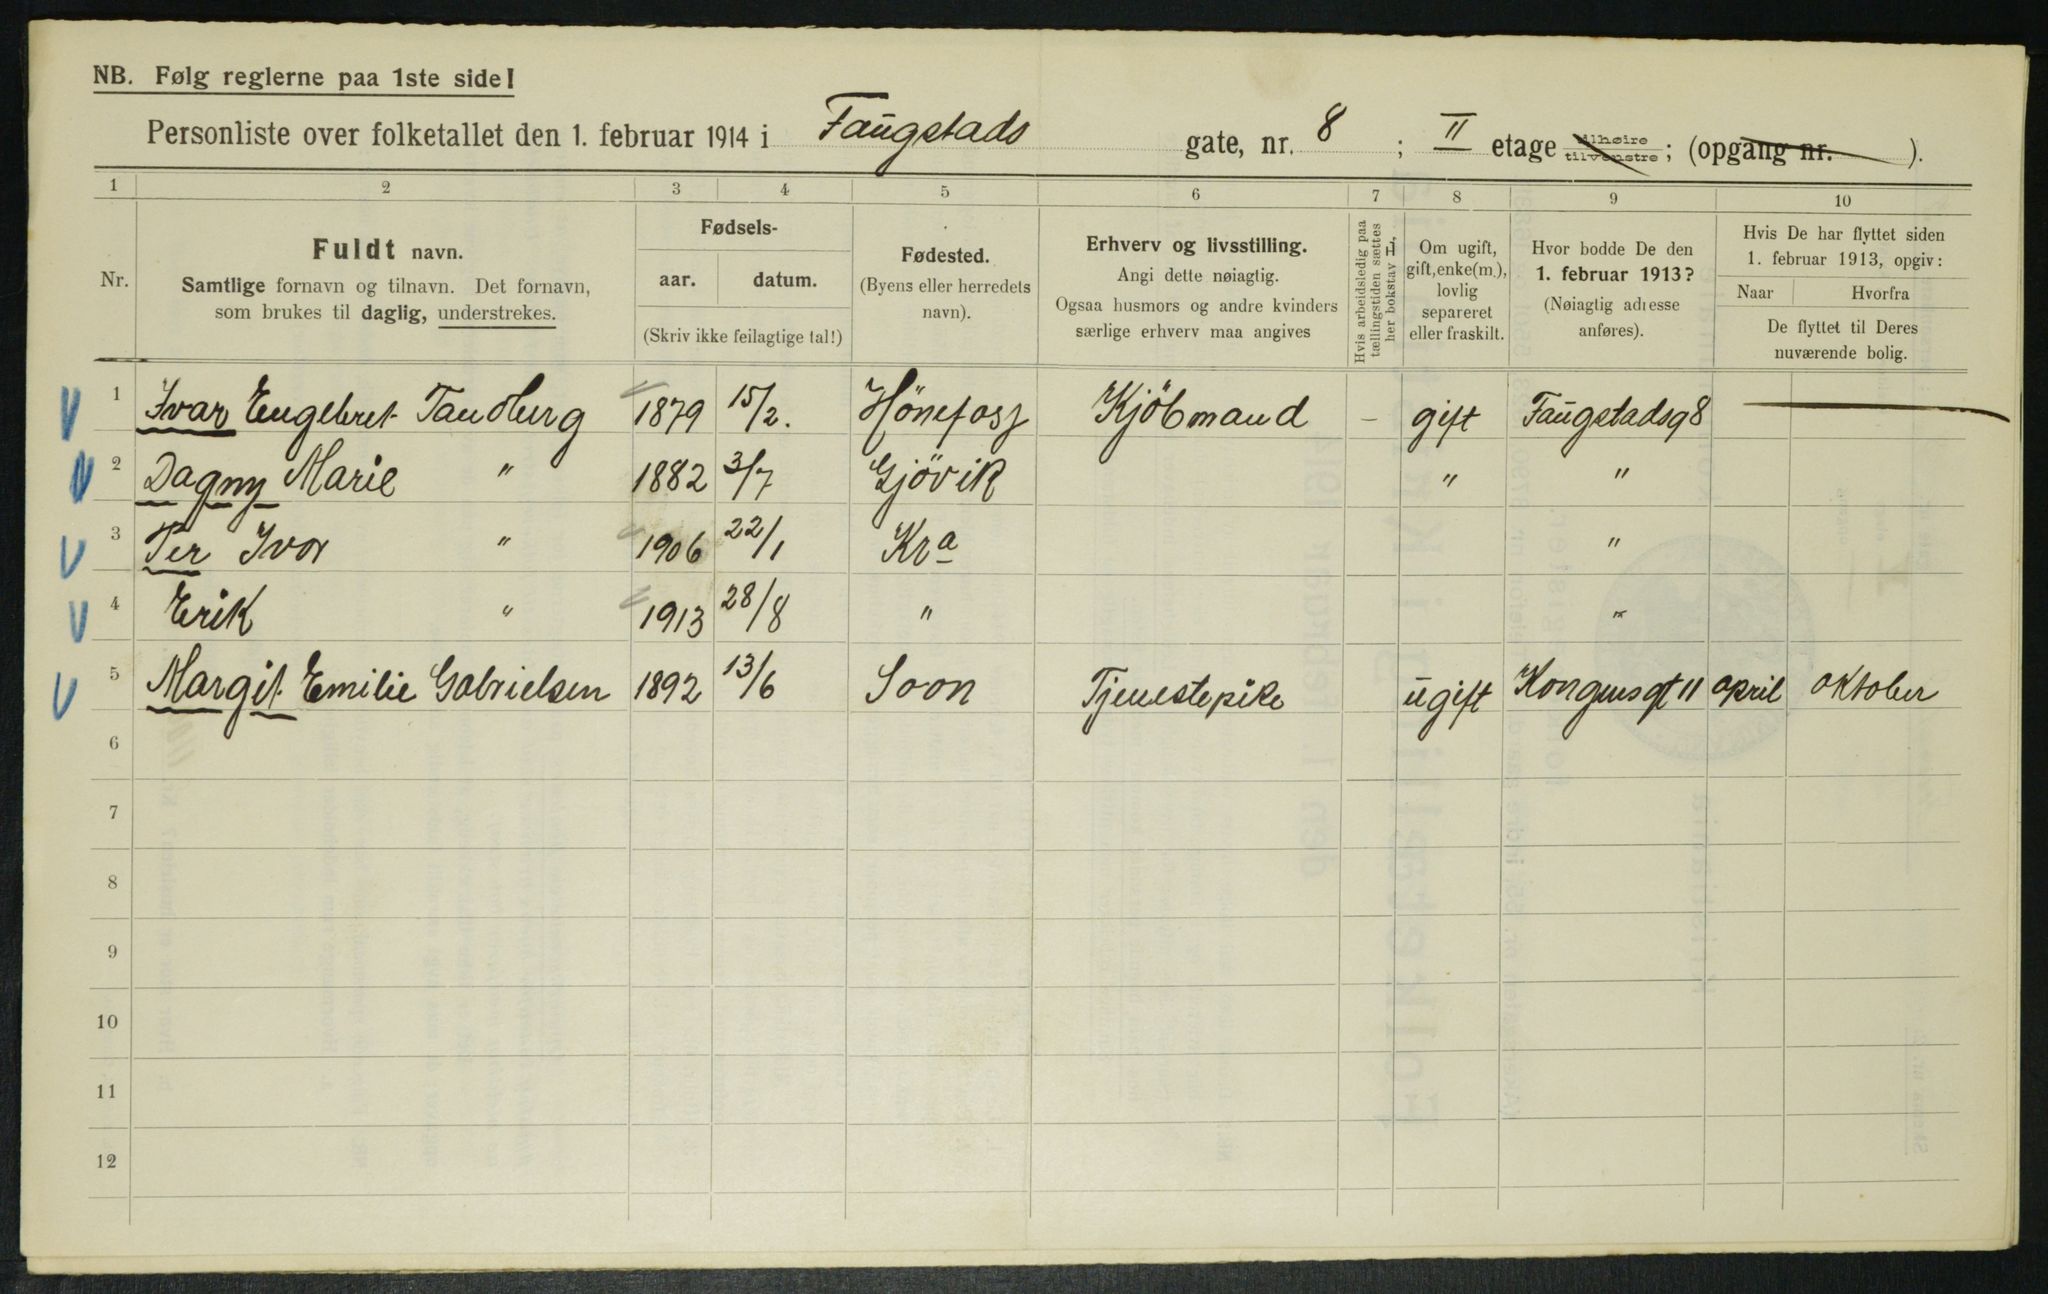 NB. Følg reglerne paa 1ste side!
Personliste over folketallet den 1. februar 1914 i Faugstads gate, nr. 8 ; II etage tilhøire tilvenstre ; (opgang nr. ).
1 2 3 4 5 6 7 8 9 10
Nr.
Fuldt navn.
Samtlige fornavn og tilnavn. Det fornavn,
som brukes til daglig, understrekes.
Fødsels-
aar. datum.
(Skriv ikke feilagtige tal!)
Fødested.
(Byens eller herredets
navn).
Erhverv og livsstilling.
Angi dette nøiagtig.
Ogsaa husmors og andre kvinders
særlige erhverv maa angives
Hvis arbeidsledig paa
tællingstiden sættes
her bokstav L.
Om ugift,
gift, enke(m.),
lovlig
separeret
eller fraskilt.
Hvor bodde De den
1. februar 1913?
(Nøiagtig adresse
anføres).
Hvis De har flyttet siden
1. februar 1913, opgiv:
Naar Hvorfra
De flyttet til Deres
nuværende bolig.
1 Ivar Engebret Tandberg 1879 15/2. Hönefoss Kjöbmand – gift Faugstadsg 8
2 Dagny Marie " 1882 3/7 Gjövik " "
3 Per Ivar " 1906 22/1 Kra "
4 Erik " 1913 28/8 " "
5 Margit Emilie Gabrielsen 1892 13/6 Soon Tjenestepike ugift Kongensgt 11 april oktober
6
7
8
9
10
11
12